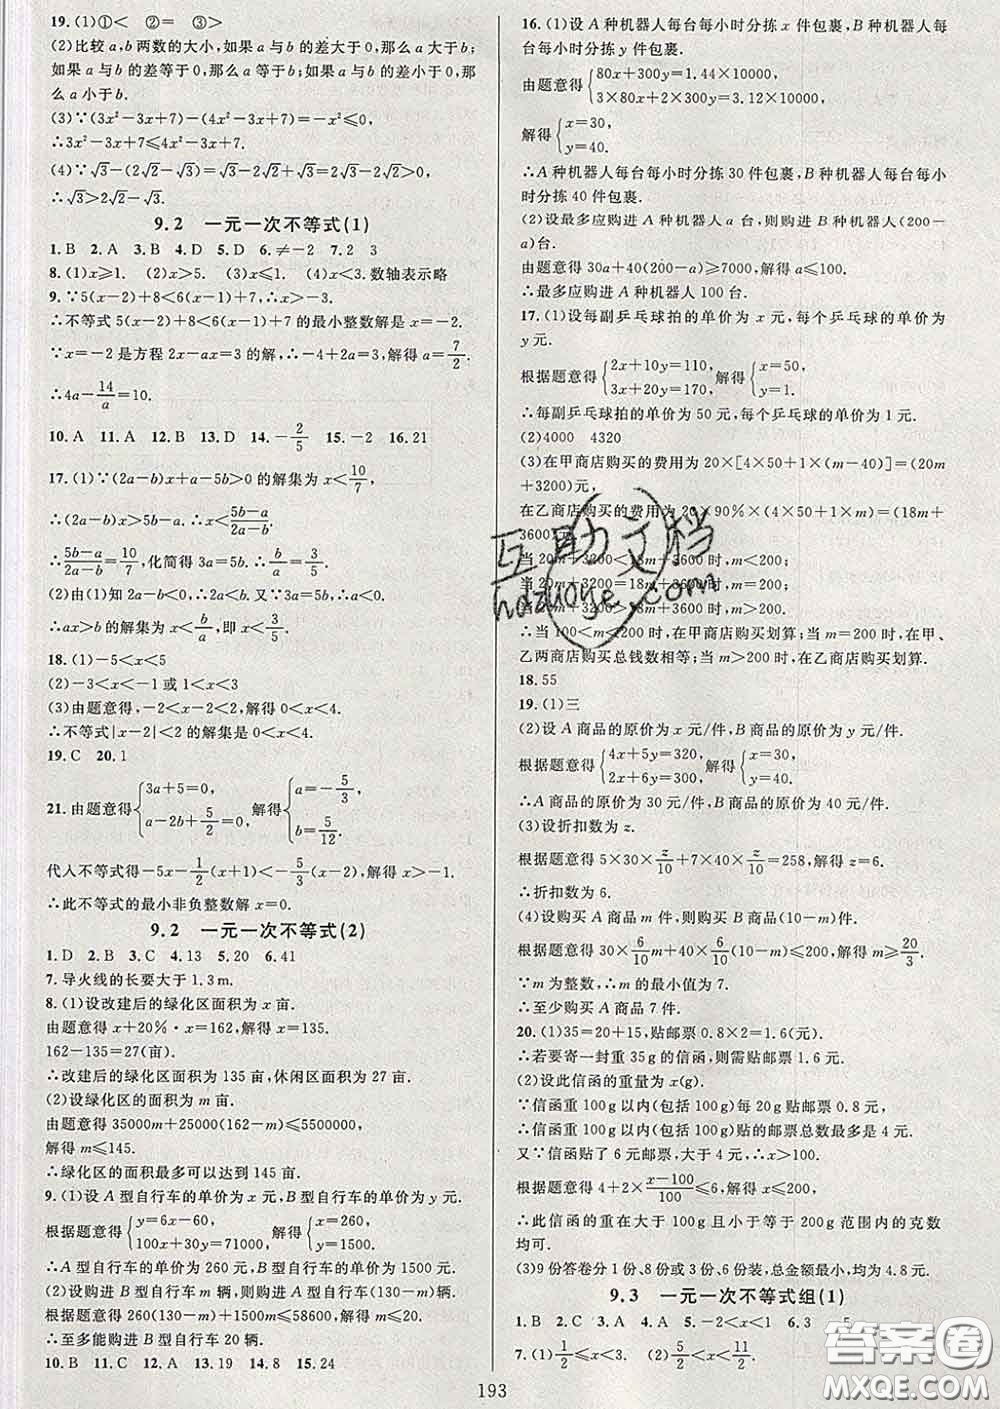 19.(1)①< ②= ③>
(2)比较 a,b 两数的大小,如果 a 与 b 的差大于 0,那么 a 大于 b;
如果 a 与 b 的差等于 0,那么 a 等于 b;如果 a 与 b 的差小于 0,那
么 a 小于 b.
(3)∵(3x²-3x+7)-(4x²-3x+7)=-x²≤0,
∴3x²-3x+7≤4x²-3x+7.
(4)∵√3-(2√2-√3)=√3-2√2+√3=2√3-2√2>0,
∴√3>2√2-√3.
9.2 一元一次不等式(1)
1.B 2.A 3.B 4.A 5.D 6.≠-2 7.2 3
8.(1)x≥1. (2)x>5. (3)x≤1. (4)x<3.数轴表示略
9.∵5(x-2)+8<6(x-1)+7,∴x>-3.
∴不等式 5(x-2)+8<6(x-1)+7 的最小整数解是 x=-2.
∵x=-2 是方程 2x-ax=3 的解,∴-4+2a=3,解得 a=7/2.
∴4a-14/a=10.
10.A 11.A 12.B 13.D 14.-2/5 15.-2 16.21
17.(1)∵(2a-b)x+a-5b>0 的解集为 x<10/7,
∴(2a-b)x>5b-a,∴x<(5b-a)/(2a-b).
∴(5b-a)/(2a-b)=10/7,化简得 3a=5b.∴b/a=3/5.
(2)由(1)知 2a-b<0,∴2a<b.又∵3a=5b,∴a<0.
∴ax>b 的解集为 x<b/a,即 x<3/5.
18.(1)-5<x<5
(2)-3<x<-1 或 1<x<3
(3)由题意,得-2<x-2<2,解得 0<x<4.
∴不等式|x-2|<2 的解集是 0<x<4.
19.C 20.1
21.由题意得{3a+5=0, a-2b+5/2=0. 解得{a=-5/3, b=5/12.
代入不等式得-5x-1/2(x+1)<-5/3(x-2),解得 x>-1.
∴此不等式的最小非负整数解 x=0.
9.2 一元一次不等式(2)
1.D 2.B 3.C 4.13 5.20 6.41
7.导火线的长要大于 1.3 m.
8.(1)设改建后的绿化区面积为 x 亩.
由题意得 x+20%·x=162,解得 x=135.
162-135=27(亩).
∴改建后的绿化区面积为 135 亩,休闲区面积为 27 亩.
(2)设绿化区的面积为 m 亩.
由题意得 35000m+25000(162-m)≤5500000,
解得 m≤145.
∴绿化区的面积最多可以达到 145 亩.
9.(1)设 A 型自行车的单价为 x 元,B 型自行车的单价为 y 元.
根据题意得{y=6x-60, 100x+30y=71000. 解得{x=260, y=1500.
∴A 型自行车的单价为 260 元,B 型自行车的单价为 1500 元.
(2)设购进 B 型自行车 m 辆,则购进 A 型自行车(130-m)辆.
根据题意得 260(130-m)+1500m≤58600,解得 m≤20.
∴至多能购进 B 型自行车 20 辆.
10.B 11.C 12.B 13.19 14.8 15.24
16.(1)设 A 种机器人每台每小时分拣 x 件包裹,B 种机器人每
台每小时分拣 y 件包裹.
由题意得{80x+300y=1.44×10000, 3×80x+2×300y=3.12×10000,
解得{x=30, y=40.
∴A 种机器人每台每小时分拣 30 件包裹,B 种机器人每台每小
时分拣 40 件包裹.
(2)设最多应购进 A 种机器人 a 台,则购进 B 种机器人(200-
a)台.
由题意得 30a+40(200-a)≥7000,解得 a≤100.
∴最多应购进 A 种机器人 100 台.
17.(1)设每副乒乓球拍的单价为 x 元,每个乒乓球的单价为
y 元.
根据题意得{2x+10y=110, 3x+20y=170. 解得{x=50, y=1.
∴每副乒乓球拍的单价为 50 元,每个乒乓球的单价为 1 元.
(2)4000 4320
(3)在甲商店购买的费用为 20×[4×50+1×(m-40)]=(20m
+3200)元,
在乙商店购买的费用为 20×90%×(4×50+1×m)=(18m+
3600)元.
当 20m+3200<18m+3600 时,m<200;
当 20m+3200=18m+3600 时,m=200;
当 20m+3200>18m+3600 时,m>200.
∴当 100<m<200 时,在甲商店购买划算;当 m=200 时,在甲、
乙两商店购买总钱数相等;当 m>200 时,在乙商店购买划算.
18.55
19.(1)三
(2)设 A 商品的原价为 x 元/件,B 商品的原价为 y 元/件.
根据题意得{4x+5y=320, 2x+6y=300, 解得{x=30, y=40.
∴A 商品的原价为 30 元/件,B 商品的原价为 40 元/件.
(3)设折扣数为 z.
根据题意得 5×30×z/10+7×40×z/10=258,解得 z=6.
∴折扣数为 6.
(4)设购买 A 商品 m 件,则购买 B 商品(10-m)件.
根据题意得 30×6/10m+40×6/10(10-m)≤200,解得 m≥20/3.
∵m 为整数,∴m 的最小值为 7.
∴至少购买 A 商品 7 件.
20.(1)35=20+15,贴邮票 0.8×2=1.6(元).
∴若要寄一封重 35g 的信函,则需贴邮票 1.6 元.
(2)设此信函的重量为 x(g).
∵信函重 100g 以内(包括 100g)每 20g 贴邮票 0.8 元,
∴信函重 100g 以内(包括 100g)的贴邮票总数最多是 4 元.
又∵信函贴了 6 元邮票,大于 4 元,∴x>100.
根据题意得 4+2×(x-100)/100≤6,解得 x≤200.
∴此信函的重在大于 100g 且小于等于 200g 范围内的克数
均可.
(3)9 份答卷分 1、8 份或 3 份、6 份装,总金额最小,均为 4.8 元.
9.3 一元一次不等式组(1)
1.B 2.C 3.A 4.A 5.-2<x<1 6.3
7.(1)1/2≤x<3.
193
互助文档
hdzuoye.com
答案圈
MXQE.COM